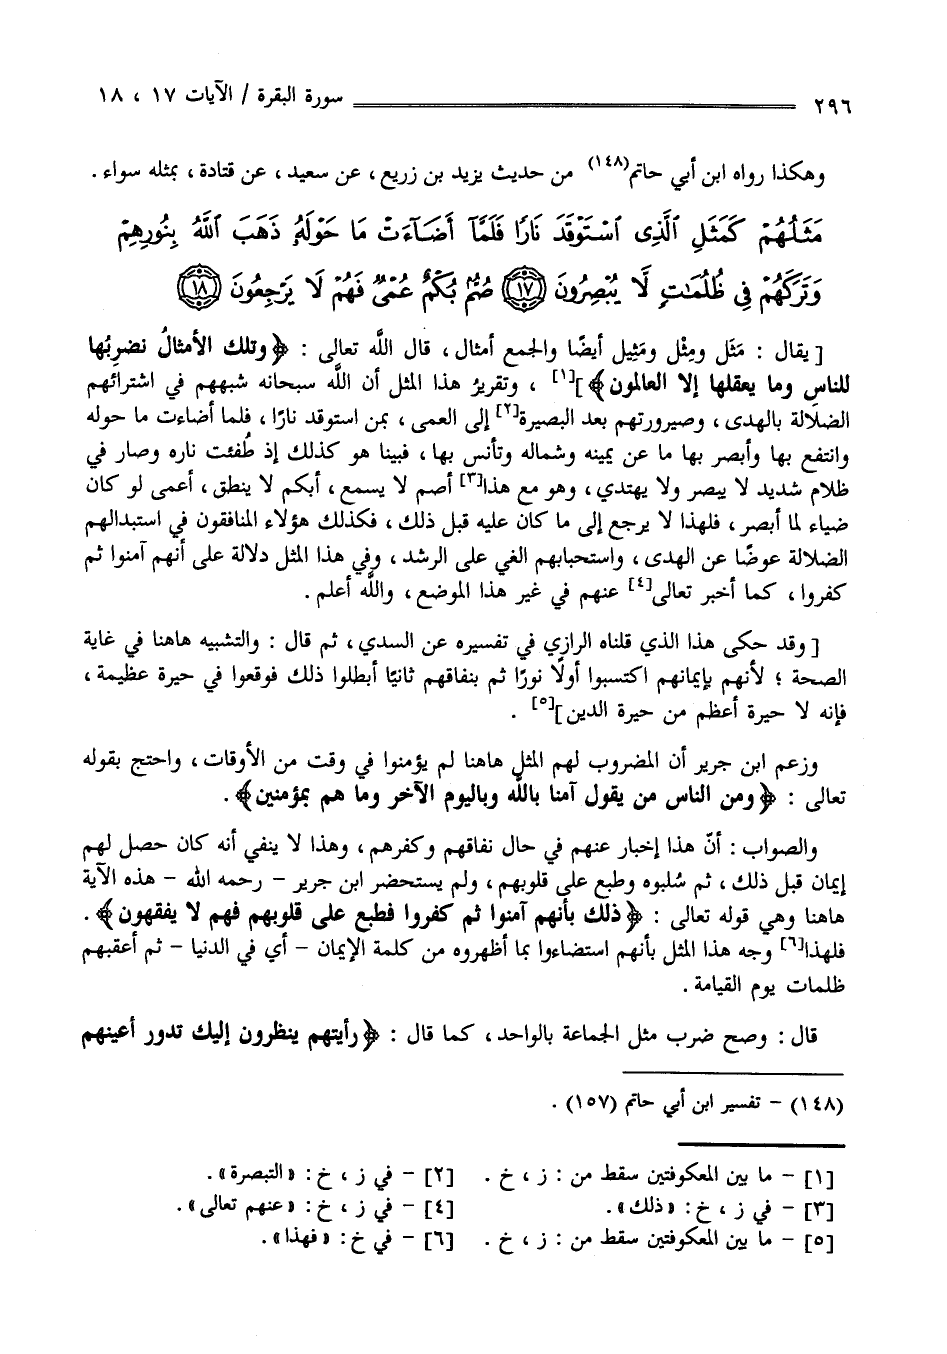 ٢٩٦ سورة البقرة / الآيات ١٧ ، ١٨
وهكذا رواه ابن أبي حاتم(١٤٨) من حديث يزيد بن زريع ، عن سعيد ، عن قتادة ، بمثله سواء .
مَثَلُهُمْ كَمَثَلِ ٱلَّذِى ٱسْتَوْقَدَ نَارًا فَلَمَّآ أَضَآءَتْ مَا حَوْلَهُۥ ذَهَبَ ٱللَّهُ بِنُورِهِمْ
وَتَرَكَهُمْ فِى ظُلُمَٰتٍ لَّا يُبْصِرُونَ ﴿١٧﴾ صُمٌّۢ بُكْمٌ عُمْىٌ فَهُمْ لَا يَرْجِعُونَ ﴿١٨﴾
[ يقال : مَثَل ومِثْل ومَثِيل أيضًا والجمع أمثال ، قال اللَّه تعالى : ﴿ وتلك الأمثالُ نضربُها
للناسِ وما يعقلها إلا العالمون ﴾ ][١] ، وتقريرُ هذا المثل أن اللَّه سبحانه شبههم في اشترائهم
الضلالة بالهدى ، وصيرورتهم بعد البصيرة[٢] إلى العمى ، بمن استوقد نارًا ، فلما أضاءت ما حوله
وانتفع بها وأبصر بها ما عن يمينه وشماله وتأنس بها ، فبينا هو كذلك إذ طُفئت ناره وصار في
ظلام شديد لا يبصر ولا يهتدي ، وهو مع هذا[٣] أصم لا يسمع ، أبكم لا ينطق ، أعمى لو كان
ضياء لما أبصر ، فلهذا لا يرجع إلى ما كان عليه قبل ذلك ، فكذلك هؤلاء المنافقون في استبدالهم
الضلالة عوضًا عن الهدى ، واستحبابهم الغي على الرشد ، وفي هذا المثل دلالة على أنهم آمنوا ثم
كفروا ، كما أخبر تعالى[٤] عنهم في غير هذا الموضع ، واللَّه أعلم .
[ وقد حكى هذا الذي قلناه الرازي في تفسيره عن السدي ، ثم قال : والتشبيه هاهنا في غاية
الصحة ؛ لأنهم بإيمانهم اكتسبوا أولًا نورًا ثم بنفاقهم ثانيًا أبطلوا ذلك فوقعوا في حيرة عظيمة ،
فإنه لا حيرة أعظم من حيرة الدين ][٥] .
وزعم ابن جرير أن المضروب لهم المثل هاهنا لم يؤمنوا في وقت من الأوقات ، واحتج بقوله
تعالى : ﴿ ومن الناس من يقول آمنا باللَّه وباليوم الآخر وما هم بمؤمنين ﴾ .
والصواب : أنّ هذا إخبار عنهم في حال نفاقهم وكفرهم ، وهذا لا ينفي أنه كان حصل لهم
إيمان قبل ذلك ، ثم سُلبوه وطبع على قلوبهم ، ولم يستحضر ابن جرير – رحمه الله – هذه الآية
هاهنا وهي قوله تعالى : ﴿ ذلك بأنهم آمنوا ثم كفروا فطبع على قلوبهم فهم لا يفقهون ﴾ .
فلهذا[٦] وجه هذا المثل بأنهم استضاءوا بما أظهروه من كلمة الإيمان – أي في الدنيا – ثم أعقبهم
ظلمات يوم القيامة .
قال : وصح ضرب مثل الجماعة بالواحد ، كما قال : ﴿ رأيتهم ينظرون إليك تدور أعينهم
(١٤٨) – تفسير ابن أبي حاتم (١٥٧) .
[١] – ما بين المعكوفتين سقط من : ز ، خ . [٢] – في ز ، خ : « التبصرة » .
[٣] – في ز ، خ : « ذلك » . [٤] – في ز ، خ : « عنهم تعالى » .
[٥] – ما بين المعكوفتين سقط من : ز ، خ . [٦] – في خ : « فهذا » .